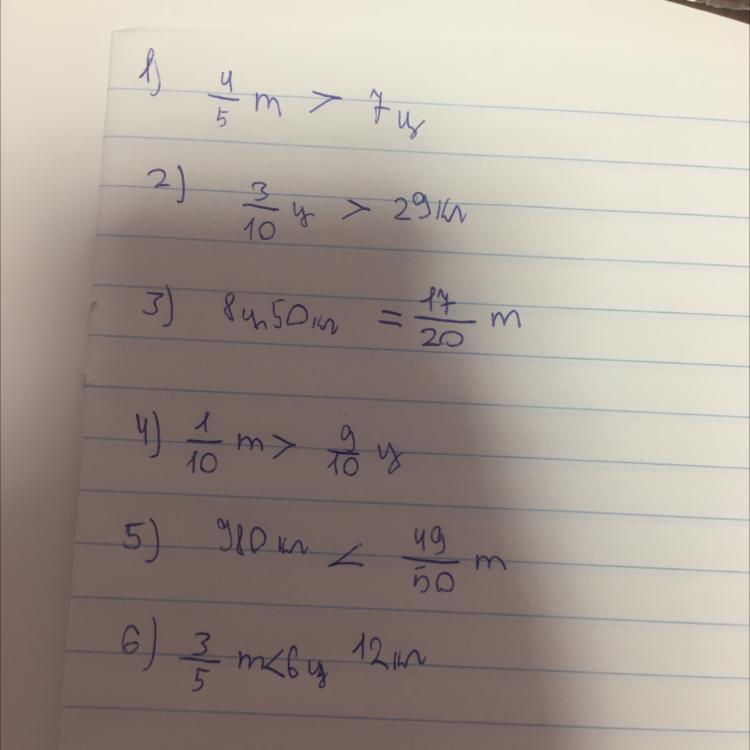 1) 4/5 т > 7 ц
2) 3/10 ц > 29 кг
3) 8 ц 50 кг = 17/20 т
4) 1/10 т > 9/10 ц
5) 980 кг < 49/50 т
6) 3/5 т < 6 ц 12 кг